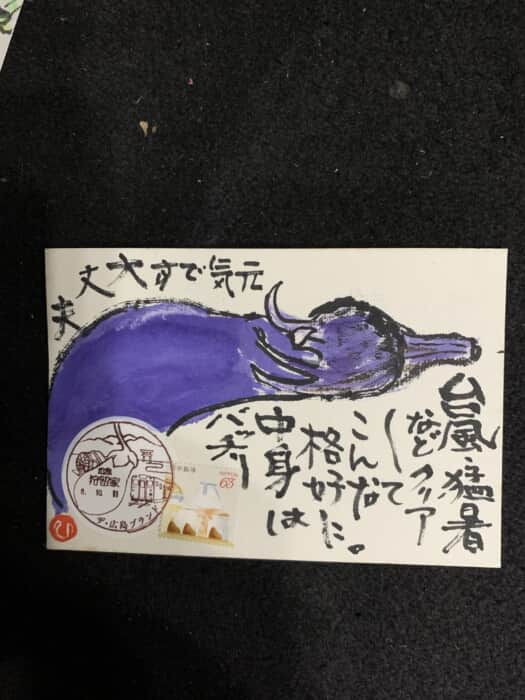 台風・猛暑
などクリア
して
こんな
格好に。
中身は
バッチリ
元気です大丈
夫
日本郵便
NIPPON
63
狩留家
ザ・広島ブランド